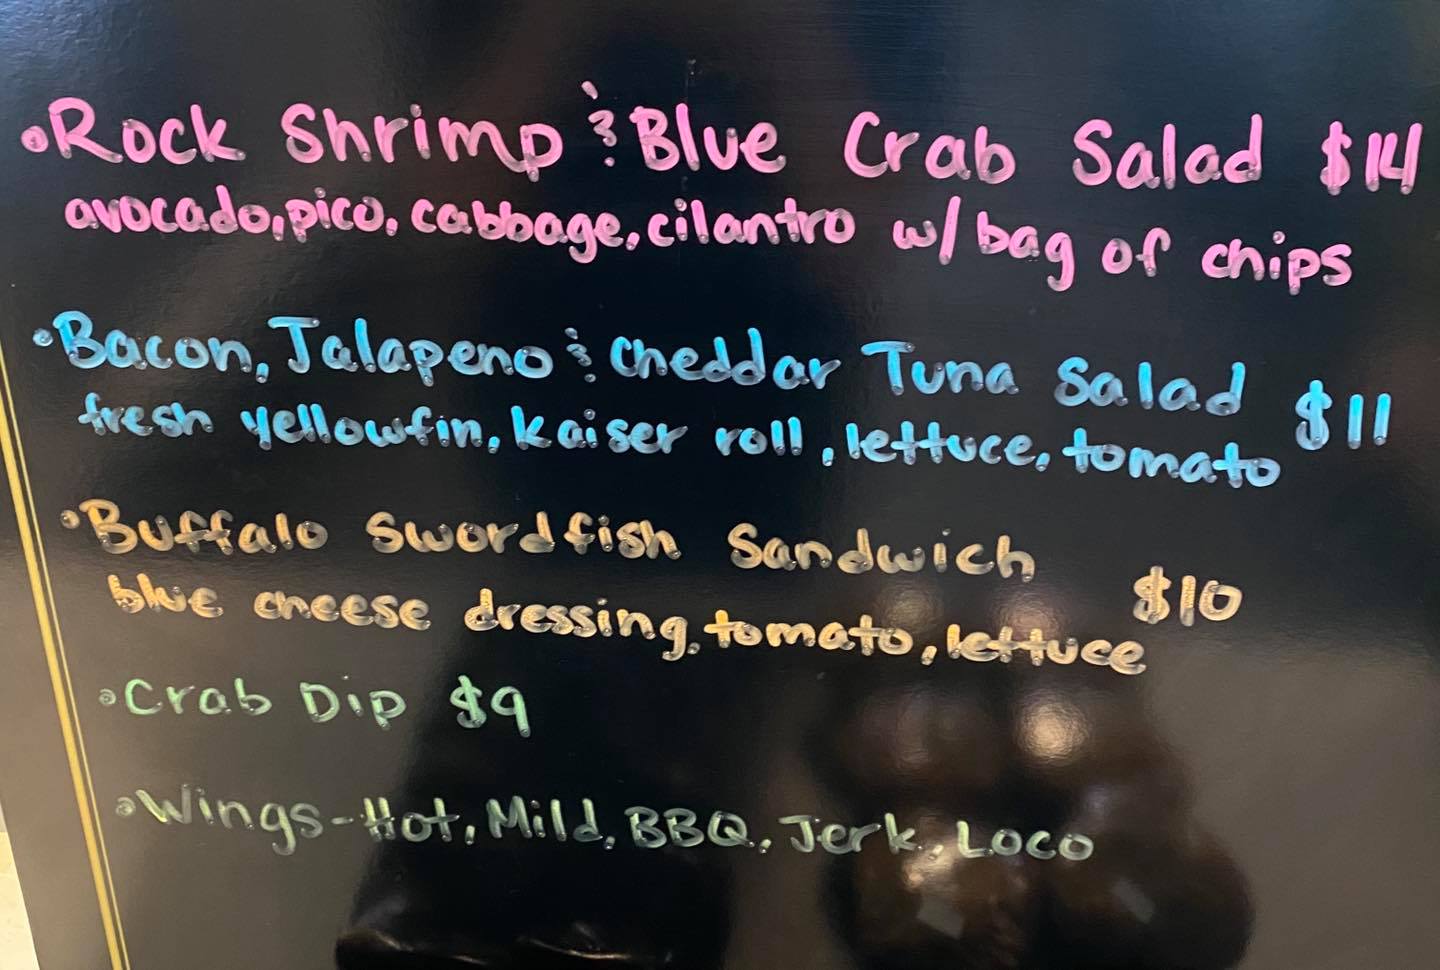 •Rock Shrimp & Blue Crab Salad $14
avocado, pico, cabbage, cilantro w/ bag of chips
•Bacon, Jalapeno & cheddar Tuna Salad $11
fresh yellowfin, kaiser roll, lettuce, tomato
•Buffalo Swordfish Sandwich $10
blue cheese dressing, tomato, lettuce
•Crab Dip $9
•Wings-Hot, Mild, BBQ, Jerk, Loco